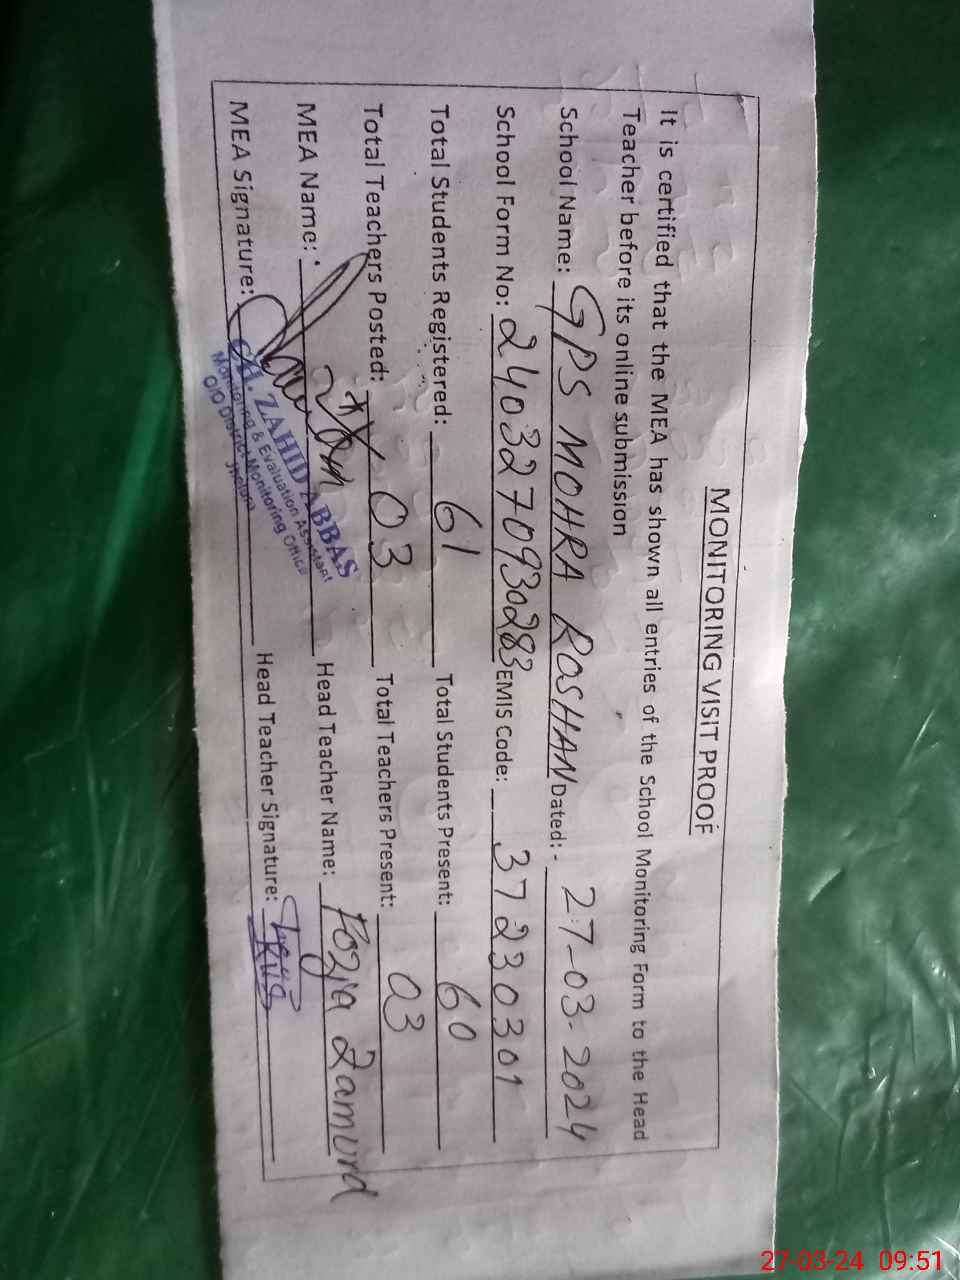 MONITORING VISIT PROOF
It is certified that the MEA has shown all entries of the School Monitoring Form to the Head
Teacher before its online submission
School Name: GPS MOHRA ROSHAN Dated:- 27-03-2024
School Form No: 2403270930283 EMIS Code: 37230301
Total Students Registered: 61 Total Students Present: 60
Total Teachers Posted: 03 Total Teachers Present: 03
MEA Name: Head Teacher Name: Fozia Zamurd
MEA Signature: Head Teacher Signature:
ZAHID ABBAS
Monitoring & Evaluation Assistant
O/O District Monitoring Office
Jhelum
27-03-24 09:51